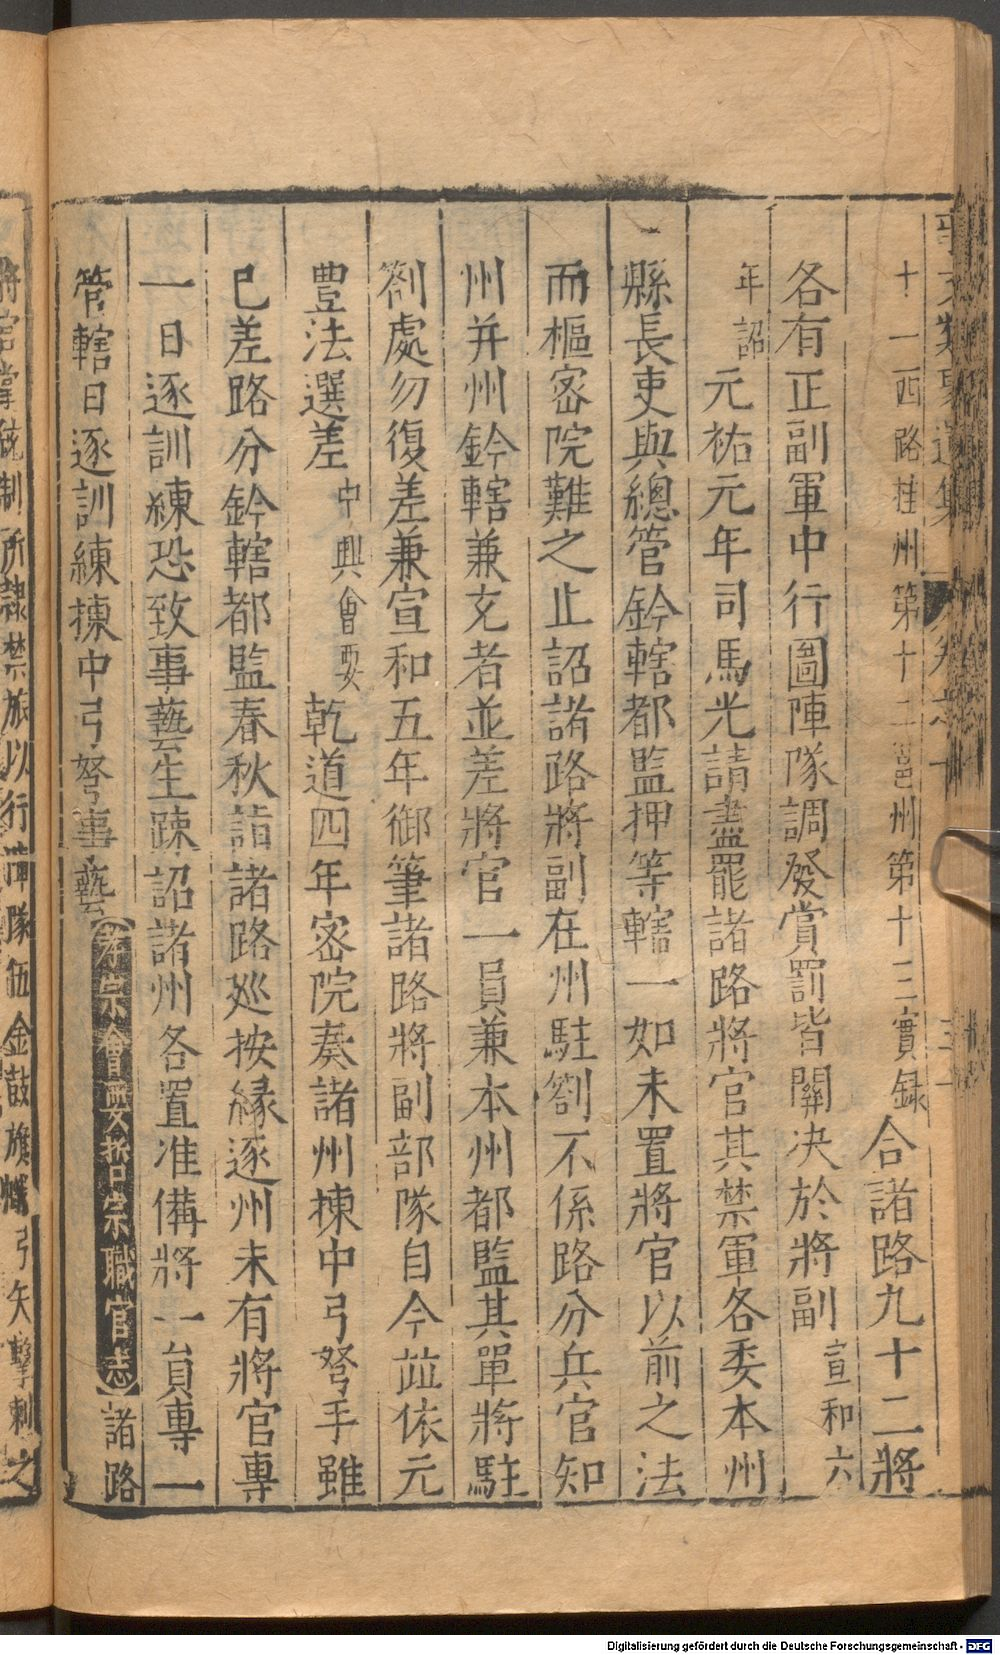 十一西路桂州第十二邕州第十三實録合諸路九十二將
各有正副軍中行圖陣隊調發賞罰皆關决於將副宣和六
年詔元祐元年司馬光請盡罷諸路將官其禁軍各委本州
縣長吏與總管鈐轄都監押等轄一如未置將官以前之法
而樞密院難之止詔諸路將副在州駐劄不係路分兵官知
州并州鈐轄兼充者並差將官一員兼本州都監其單將駐
劄處勿復差兼宣和五年御筆諸路將副部隊自今並依元
豊法選差中興會要乾道四年密院奏諸州揀中弓弩手雖
已差路分鈐轄都監春秋詣諸路廵按縁逐州未有將官專
一日逐訓練恐致事藝生踈詔諸州各置准備將一員專一
管轄日逐訓練揀中弓弩事藝【孝宗會要哲宗職官志】諸路
將官掌統制所隷禁旅以行陣隊伍金鼓旗幟弓矢擊刺之
Digitalisierung gefördert durch die Deutsche Forschungsgemeinschaft - DFG